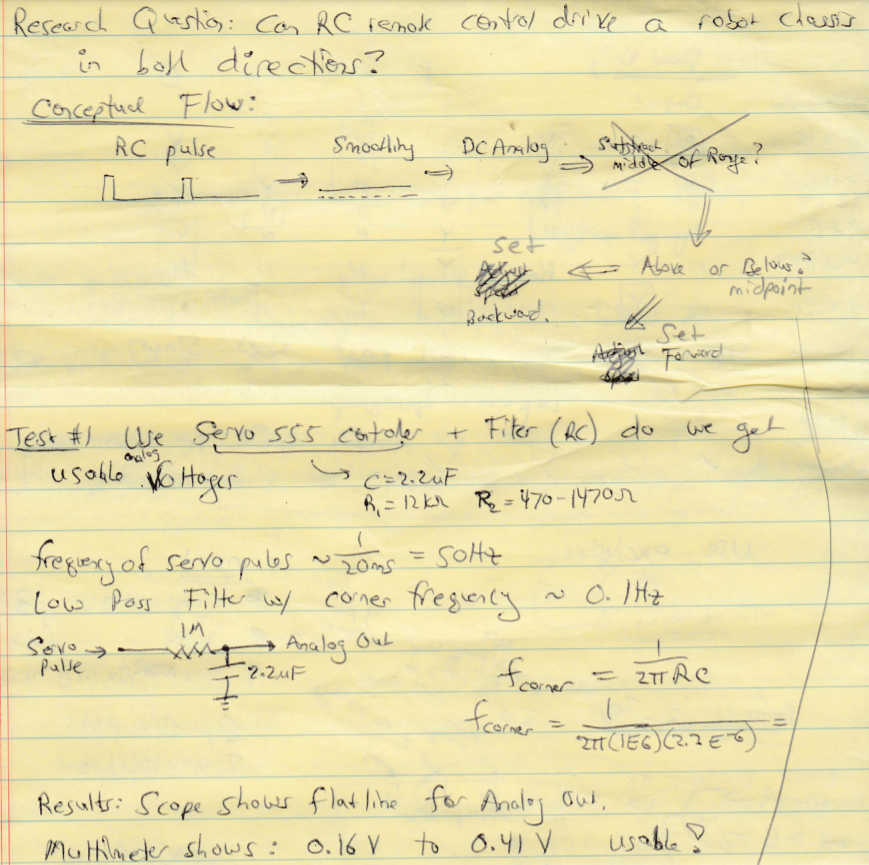 Research Question: Can RC remote control drive a robot chassis
in both directions?
Conceptual Flow:
RC pulse ⇒ Smoothing ⇒ DC Analog ⇒ Subtract middle of Range?
Set
Above or Below?
midpoint
Adjust
Speed
Backward.
Set
Adjust Forward
Speed
Test #1 Use Servo 555 controler + Filter (RC) do we get
usable analog Voltages
C = 2.2uF
R1 = 12kΩ R2 = 470-1470Ω
frequency of servo pulses ~ 1/20ms = 50Hz
Low Pass Filter w/ corner frequency ~ 0.1Hz
1M
Servo → Analog Out
Pulse
2.2uF
fcorner = 1/2πRC
fcorner = 1/2π(1E6)(2.2E-6) =
Results: Scope shows flatline for Analog Out.
Multimeter shows: 0.16 V to 0.41 V usable?